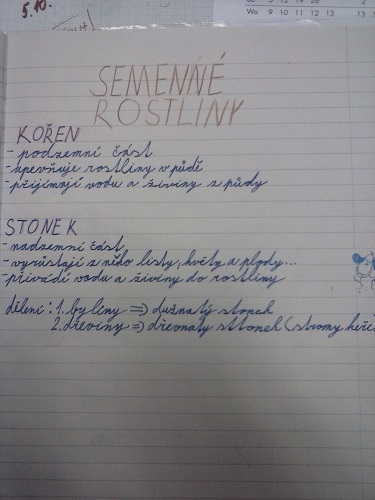 5.10.
Wo 9 10 11 12 13 13
SEMENNÉ
ROSTLINY
KOŘEN
- podzemní část
- upevňuje rostliny v půdě
- přijímají vodu a živiny z půdy
STONEK
- nadzemní část
- vyrůstají z něho listy, květy a plody...
- přivádí vodu a živiny do rostliny
dělení: 1. byliny => dužnatý stonek
2. dřeviny => dřevnatý sttonek (stromy keře